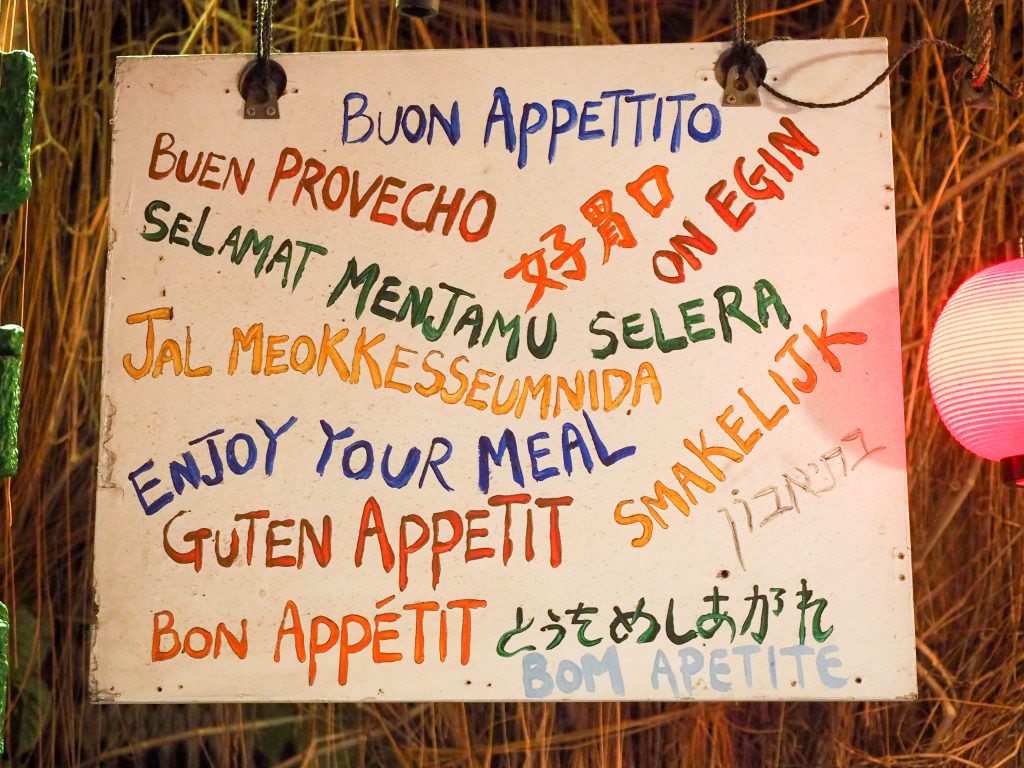 BUON APPETTITO
BUEN PROVECHO
好胃口
ON EGIN
SELAMAT MENJAMU SELERA
JAL MEOKKESSEUMNIDA
SMAKELIJK
ENJOY YOUR MEAL
בתיאבון
GUTEN APPETIT
BON APPÉTIT
とうをめしあがれ
BOM APETITE